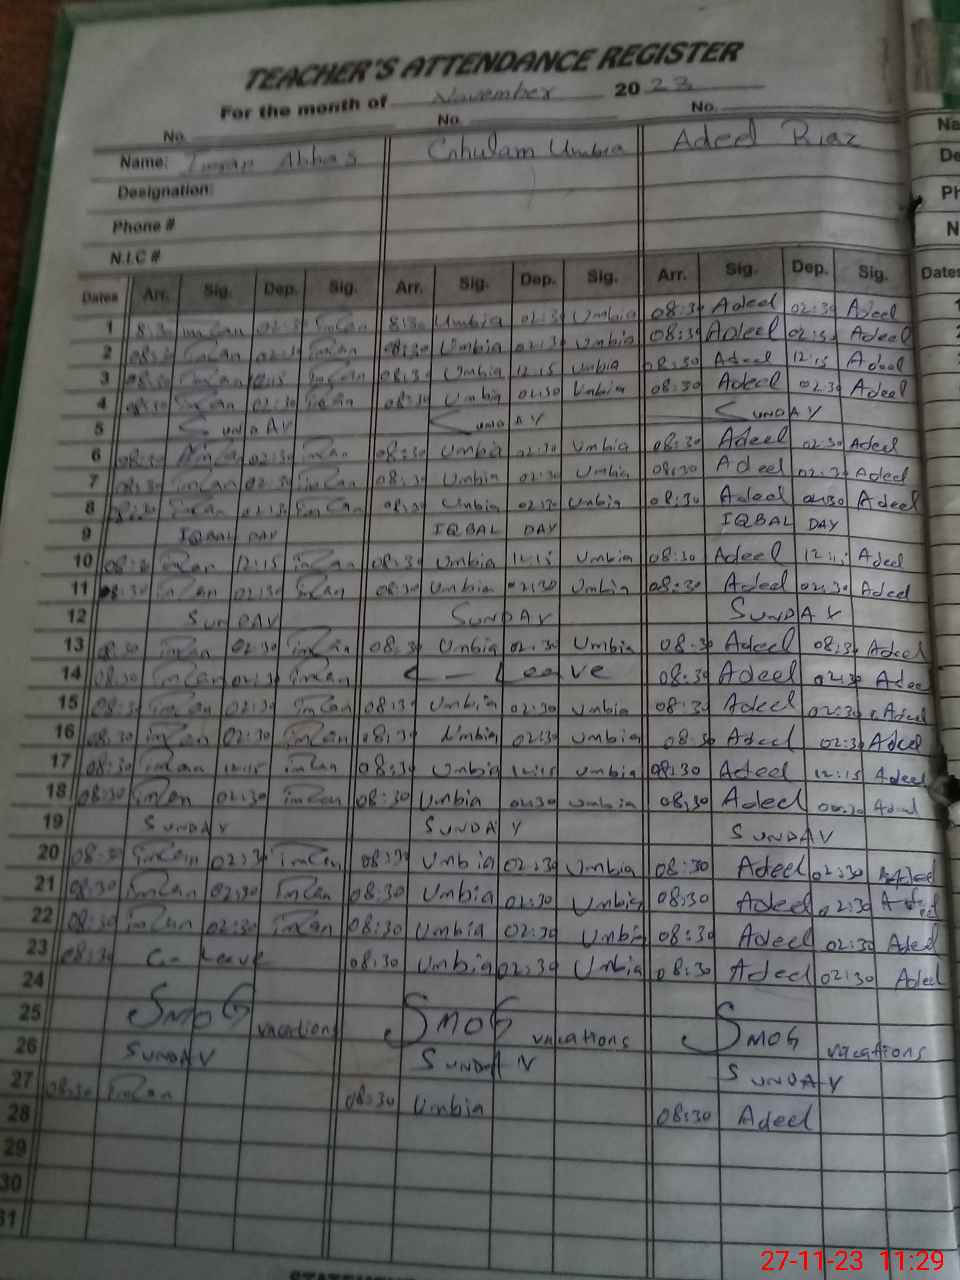 TEACHER'S ATTENDANCE REGISTER
For the month of November 2023
No. No. No.
Name: Abbas Ghulam Umbia Adeel Riaz
Designation:
Phone #
N.I.C #
Dates Arr. Sig. Dep. Sig. Arr. Sig. Dep. Sig. Arr. Sig. Dep. Sig. Dates
1 8:30 imran 02:30 imran 8:30 Umbia 02:30 Umbia 08:30 Adeel 02:30 Adeel
2 08:30 imran 02:30 imran 08:30 Umbia 02:30 Umbia 08:30 Adeel Adeel
3 08:30 imran 12:15 imran 08:30 Umbia 12:15 Umbia 08:30 Adeel 12:15 Adeel
4 08:30 imran 02:30 imran 08:30 Umbia 02:30 Umbia 08:30 Adeel 02:30 Adeel
5 SUNDAY SUNDAY SUNDAY
6 08:30 imran 02:30 imran 08:30 Umbia 02:30 Umbia 08:30 Adeel 02:30 Adeel
7 08:30 imran 02:30 imran 08:30 Umbia 02:30 Umbia 08:30 Adeel 02:30 Adeel
8 08:30 imran 02:30 imran 08:30 Umbia 02:30 Umbia 08:30 Adeel 02:30 Adeel
9 IQBAL DAY IQBAL DAY IQBAL DAY
10 08:30 imran 12:15 imran 08:30 Umbia 12:15 Umbia 08:30 Adeel 12:15 Adeel
11 08:30 imran 02:30 imran 08:30 Umbia 02:30 Umbia 08:30 Adeel 02:30 Adeel
12 SUNDAY SUNDAY SUNDAY
13 08:30 imran 02:30 imran 08:30 Umbia 02:30 Umbia 08:30 Adeel 08:30 Adeel
14 08:30 imran 02:30 imran Leave 08:30 Adeel 02:30 Adeel
15 08:30 imran 02:30 imran 08:30 Umbia 02:30 Umbia 08:30 Adeel 02:30 Adeel
16 08:30 imran 02:30 imran 08:30 Umbia 02:30 Umbia 08:30 Adeel 02:30 Adeel
17 08:30 imran 12:15 imran 08:30 Umbia 12:15 Umbia 08:30 Adeel 12:15 Adeel
18 08:30 imran 02:30 imran 08:30 Umbia 02:30 Umbia 08:30 Adeel 02:30 Adeel
19 SUNDAY SUNDAY SUNDAY
20 08:30 imran 02:30 imran 08:30 Umbia 02:30 Umbia 08:30 Adeel 02:30 Adeel
21 08:30 imran 02:30 imran 08:30 Umbia 02:30 Umbia 08:30 Adeel 02:30 Adeel
22 08:30 imran 02:30 imran 08:30 Umbia 02:30 Umbia 08:30 Adeel 02:30 Adeel
23 08:30 on Leave 08:30 Umbia 02:30 Umbia 08:30 Adeel 02:30 Adeel
24
25 SMOG vacations SMOG vacations SMOG vacations
26 SUNDAY SUNDAY SUNDAY
27 08:30 imran 08:30 Umbia 08:30 Adeel
28
29
30
31
27-11-23 11:29